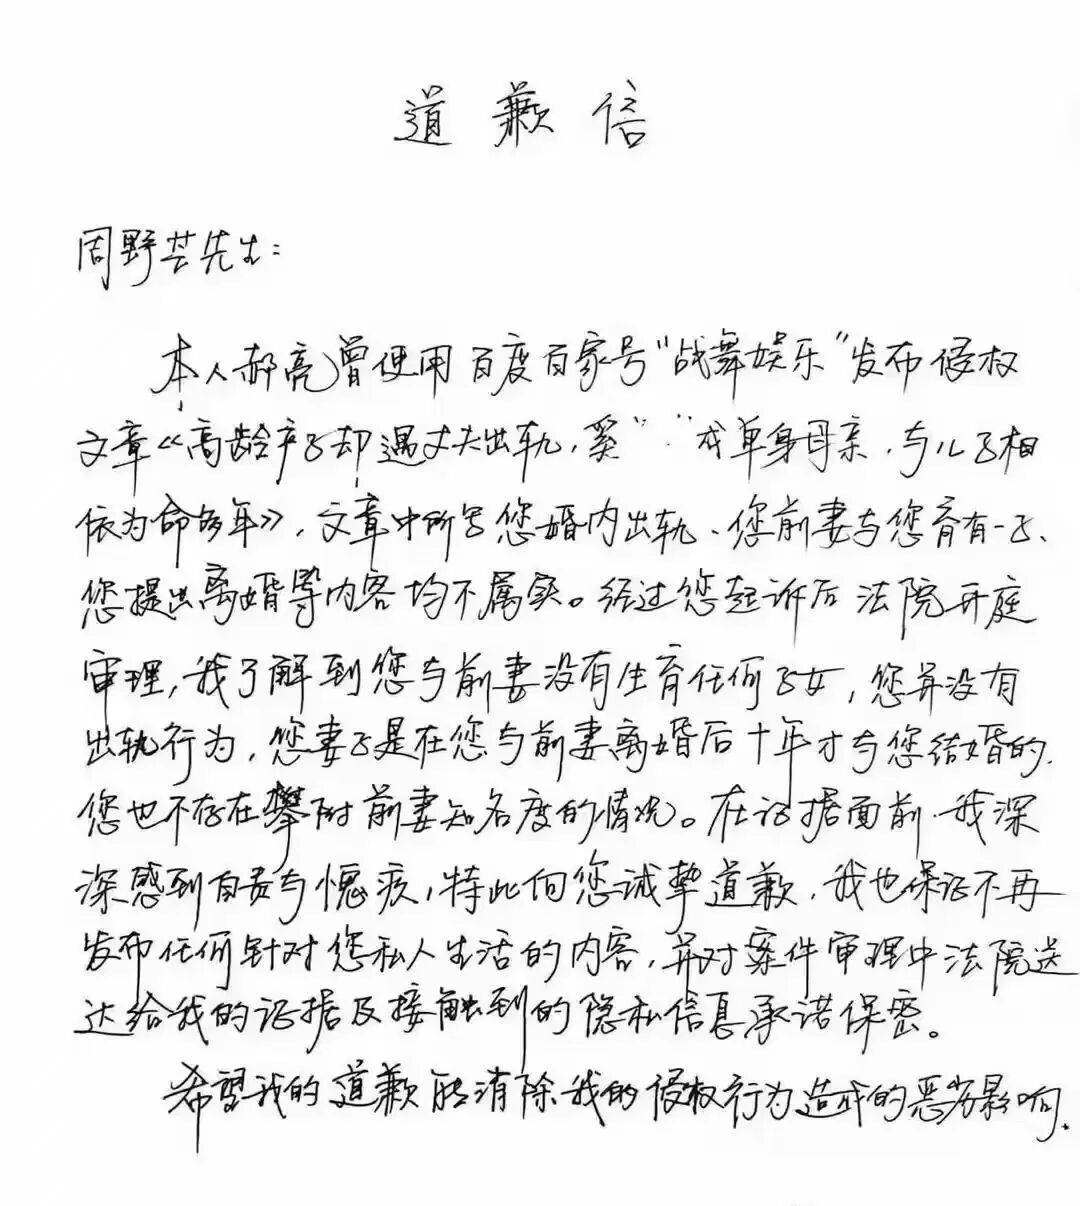 道歉信
周野芒先生:
本人郝亮曾使用百度百家号“战舞娱乐”发布侵权
文章《高龄产子却遇丈夫出轨,奚" "成单身母亲,与儿子相
依为命多年》,文章中所写您婚内出轨、您前妻与您育有一子、
您提出离婚等内容均不属实。经过您起诉后法院开庭
审理,我了解到您与前妻没有生育任何子女,您并没有
出轨行为,您妻子是在您与前妻离婚后十年才与您结婚的,
您也不存在攀附前妻知名度的情况。在证据面前,我深
深感到自责与愧疚,特此向您诚挚道歉,我也保证不再
发布任何针对您私人生活的内容,并对案件审理中法院送
达给我的证据及接触到的隐私信息承诺保密。
希望我的道歉能消除我的侵权行为造成的恶劣影响.